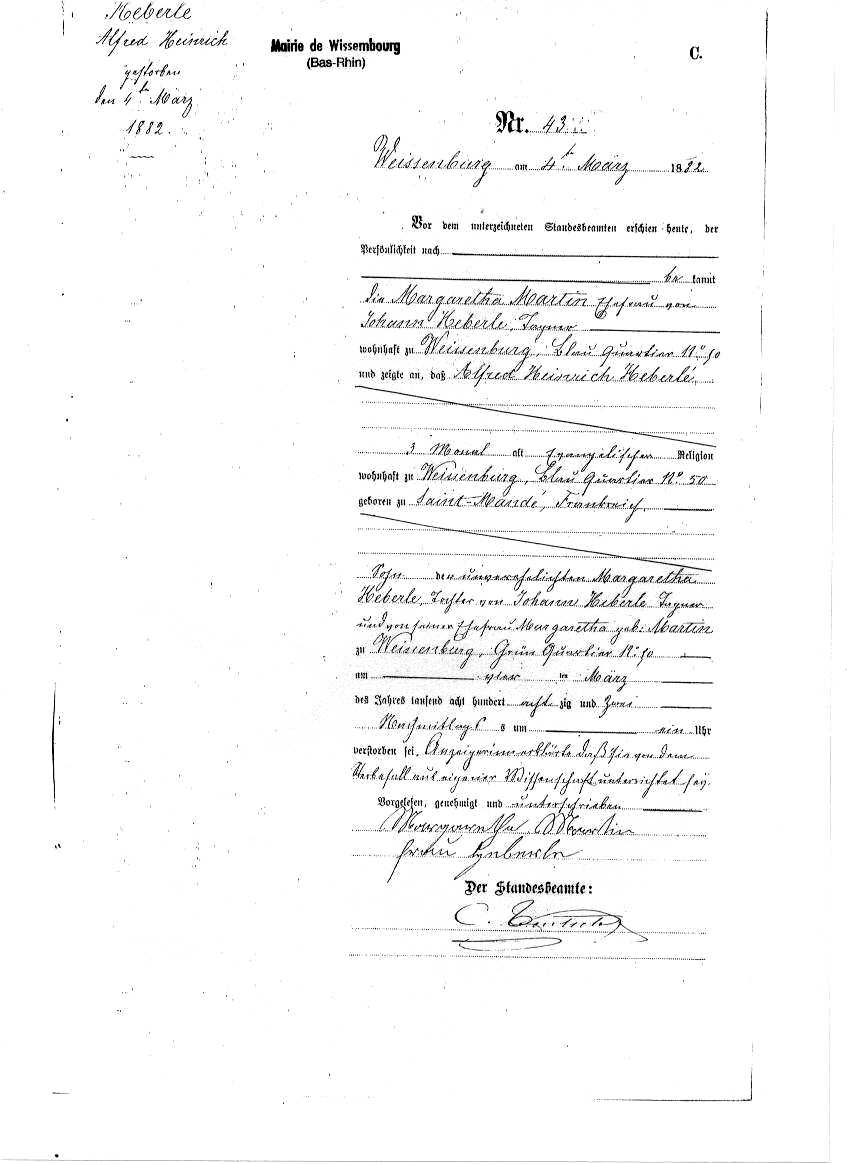 Heberle
Alfred Heinrich
gestorben
den 4ten März
1882.
Mairie de Wissembourg
(Bas-Rhin)
C.
Nr. 43
Weissenburg am 4ten März 1882
Vor dem unterzeichneten Standesbeamten erschien heute, der
Persönlichkeit nach
be kannt
die Margaretha Martin Ehefrau von
Johann Heberle, Tagner
wohnhaft zu Weissenburg, Blau Quartier No 50
und zeigte an, daß Alfred Heinrich Heberlé,
3 Monat alt evangelischer Religion
wohnhaft zu Weissenburg, Blau Quartier No 50
geboren zu Saint-Mandé, Frankreich,
Sohn der unverehelichten Margaretha
Heberle, Tochter von Johann Heberle Tagner
und von seiner Ehefrau Margaretha geb. Martin
zu Weissenburg, Grün Quartier No 50
am vier ten März
des Jahres tausend acht hundert acht zig und Zwei
Nachmittags um ein Uhr
verstorben sei. Anzeigerin erklärte daß sie von dem
Sterbefall aus eigener Wissenschaft unterrichtet sey.
Vorgelesen, genehmigt und unterschrieben
Margaretha Martin
frau Heberle
Der Standesbeamte:
C.